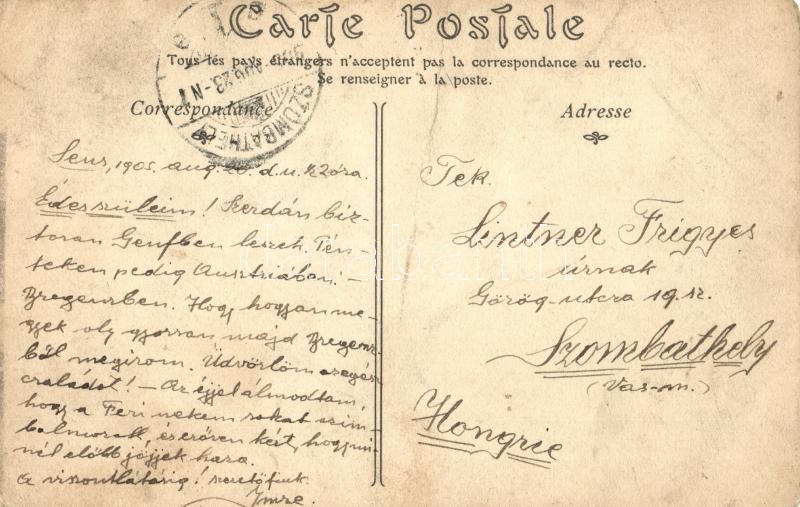 Carte Postale
Tous les pays étrangers n'acceptent pas la correspondance au recto.
Se renseigner à la poste.
Correspondance
Adresse
SZOMBATHELY
AUG. 23.-N1
Sens, 1905. aug. 20. d.u. ½2óra.
Édes szüleim! Szerdán biz-
tosan Genfben leszek. Pén-
teken pedig Ausztriában! -
Bregenzben. Hogy hogyan me-
gyek oly gyorsan majd Bregenz-
ből megirom. Üdvözlöm az egész
családot! - Az éjjel álmodtam,
hogy a Feri nekem sokat czim-
balmozott, és erősen kért, hogy mi-
nél előbb jöjjek haza.
A viszontlátásig! szerető fiuk
Imre.
Tek.
Lintner Frigyes
úrnak
Görög-utcza 19. sz.
Szombathely
(Vas-m.)
Hongrie